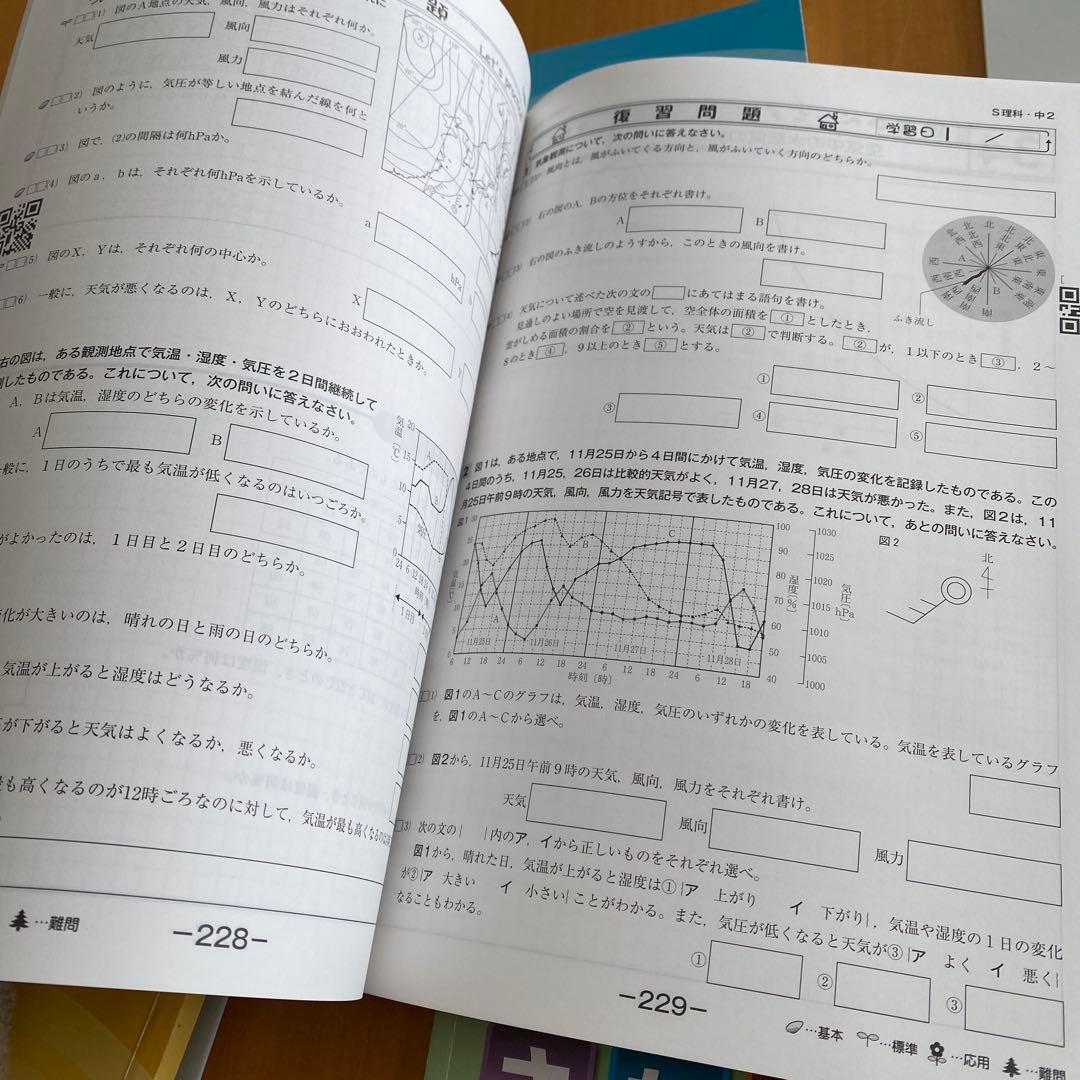 題
(1) 図のA地点の天気，風向，風力はそれぞれ何か。
天気
風向
風力
(2) 図のように，気圧が等しい地点を結んだ線を何と
いうか。
(3) 図で，(2)の間隔は何hPaか。
(4) 図のa，bは，それぞれ何hPaを示しているか。
a
hPa
(5) 図のX，Yは，それぞれ何の中心か。
X
(6) 一般に，天気が悪くなるのは，X，Yのどちらにおおわれたときか。
右の図は，ある観測地点で気温・湿度・気圧を2日間継続して
測したものである。これについて，次の問いに答えなさい。
A，Bは気温，湿度のどちらの変化を示しているか。
A
B
一般に，1日のうちで最も気温が低くなるのはいつごろか。
がよかったのは，1日目と2日目のどちらか。
変化が大きいのは，晴れの日と雨の日のどちらか。
気温が上がると湿度はどうなるか。
が下がると天気はよくなるか，悪くなるか。
最も高くなるのが12時ごろなのに対して，気温が最も高くなるのは
気温
(℃)
20
15
10
5
0
24 6 12 18
時刻
1日目
…難問
－228－
S理科・中2
復習問題
学習日
/
1 気象観測について，次の問いに答えなさい。
(1) 風向とは，風がふいてくる方向と，風がふいていく方向のどちらか。
(2) 右の図のA，Bの方位をそれぞれ書け。
A
B
(3) 右の図のふき流しのようすから，このときの風向を書け。
ふき流し
(4) 天気について述べた次の文の□にあてはまる語句を書け。
見通しのよい場所で空を見渡して，空全体の面積を①としたとき，
雲がしめる面積の割合を②という。天気は②で判断する。②が，1以下のとき③，2～
8のとき④，9以上のとき⑤とする。
①
②
③
④
⑤
2 図1は，ある地点で，11月25日から4日間にかけて気温，湿度，気圧の変化を記録したものである。この
4日間のうち，11月25，26日は比較的天気がよく，11月27，28日は天気が悪かった。また，図2は，11
月25日午前9時の天気，風向，風力を天気記号で表したものである。これについて，あとの問いに答えなさい。
図1
A
B
C
11月25日
11月26日
11月27日
11月28日
6 12 18 24 6 12 18 24 6 12 18 24 6 12 18
時刻〔時〕
100
90
80
70
60
50
40
湿度〔%〕
1030
1025
1020
1015
1010
1005
1000
気圧〔hPa〕
図2
北
(1) 図1のA～Cのグラフは，気温，湿度，気圧のいずれかの変化を表している。気温を表しているグラフ
を，図1のA～Cから選べ。
(2) 図2から，11月25日午前9時の天気，風向，風力をそれぞれ書け。
天気
風向
風力
(3) 次の文の｛　｝内のア，イから正しいものをそれぞれ選べ。
図1から，晴れた日，気温が上がると湿度は①｛ア 上がり　イ 下がり｝，気温や湿度の1日の変化
が②｛ア 大きい　イ 小さい｝ことがわかる。また，気圧が低くなると天気が③｛ア よく　イ 悪く｝
なることもわかる。
①
②
③
－229－
…基本
…標準
…応用
…難問